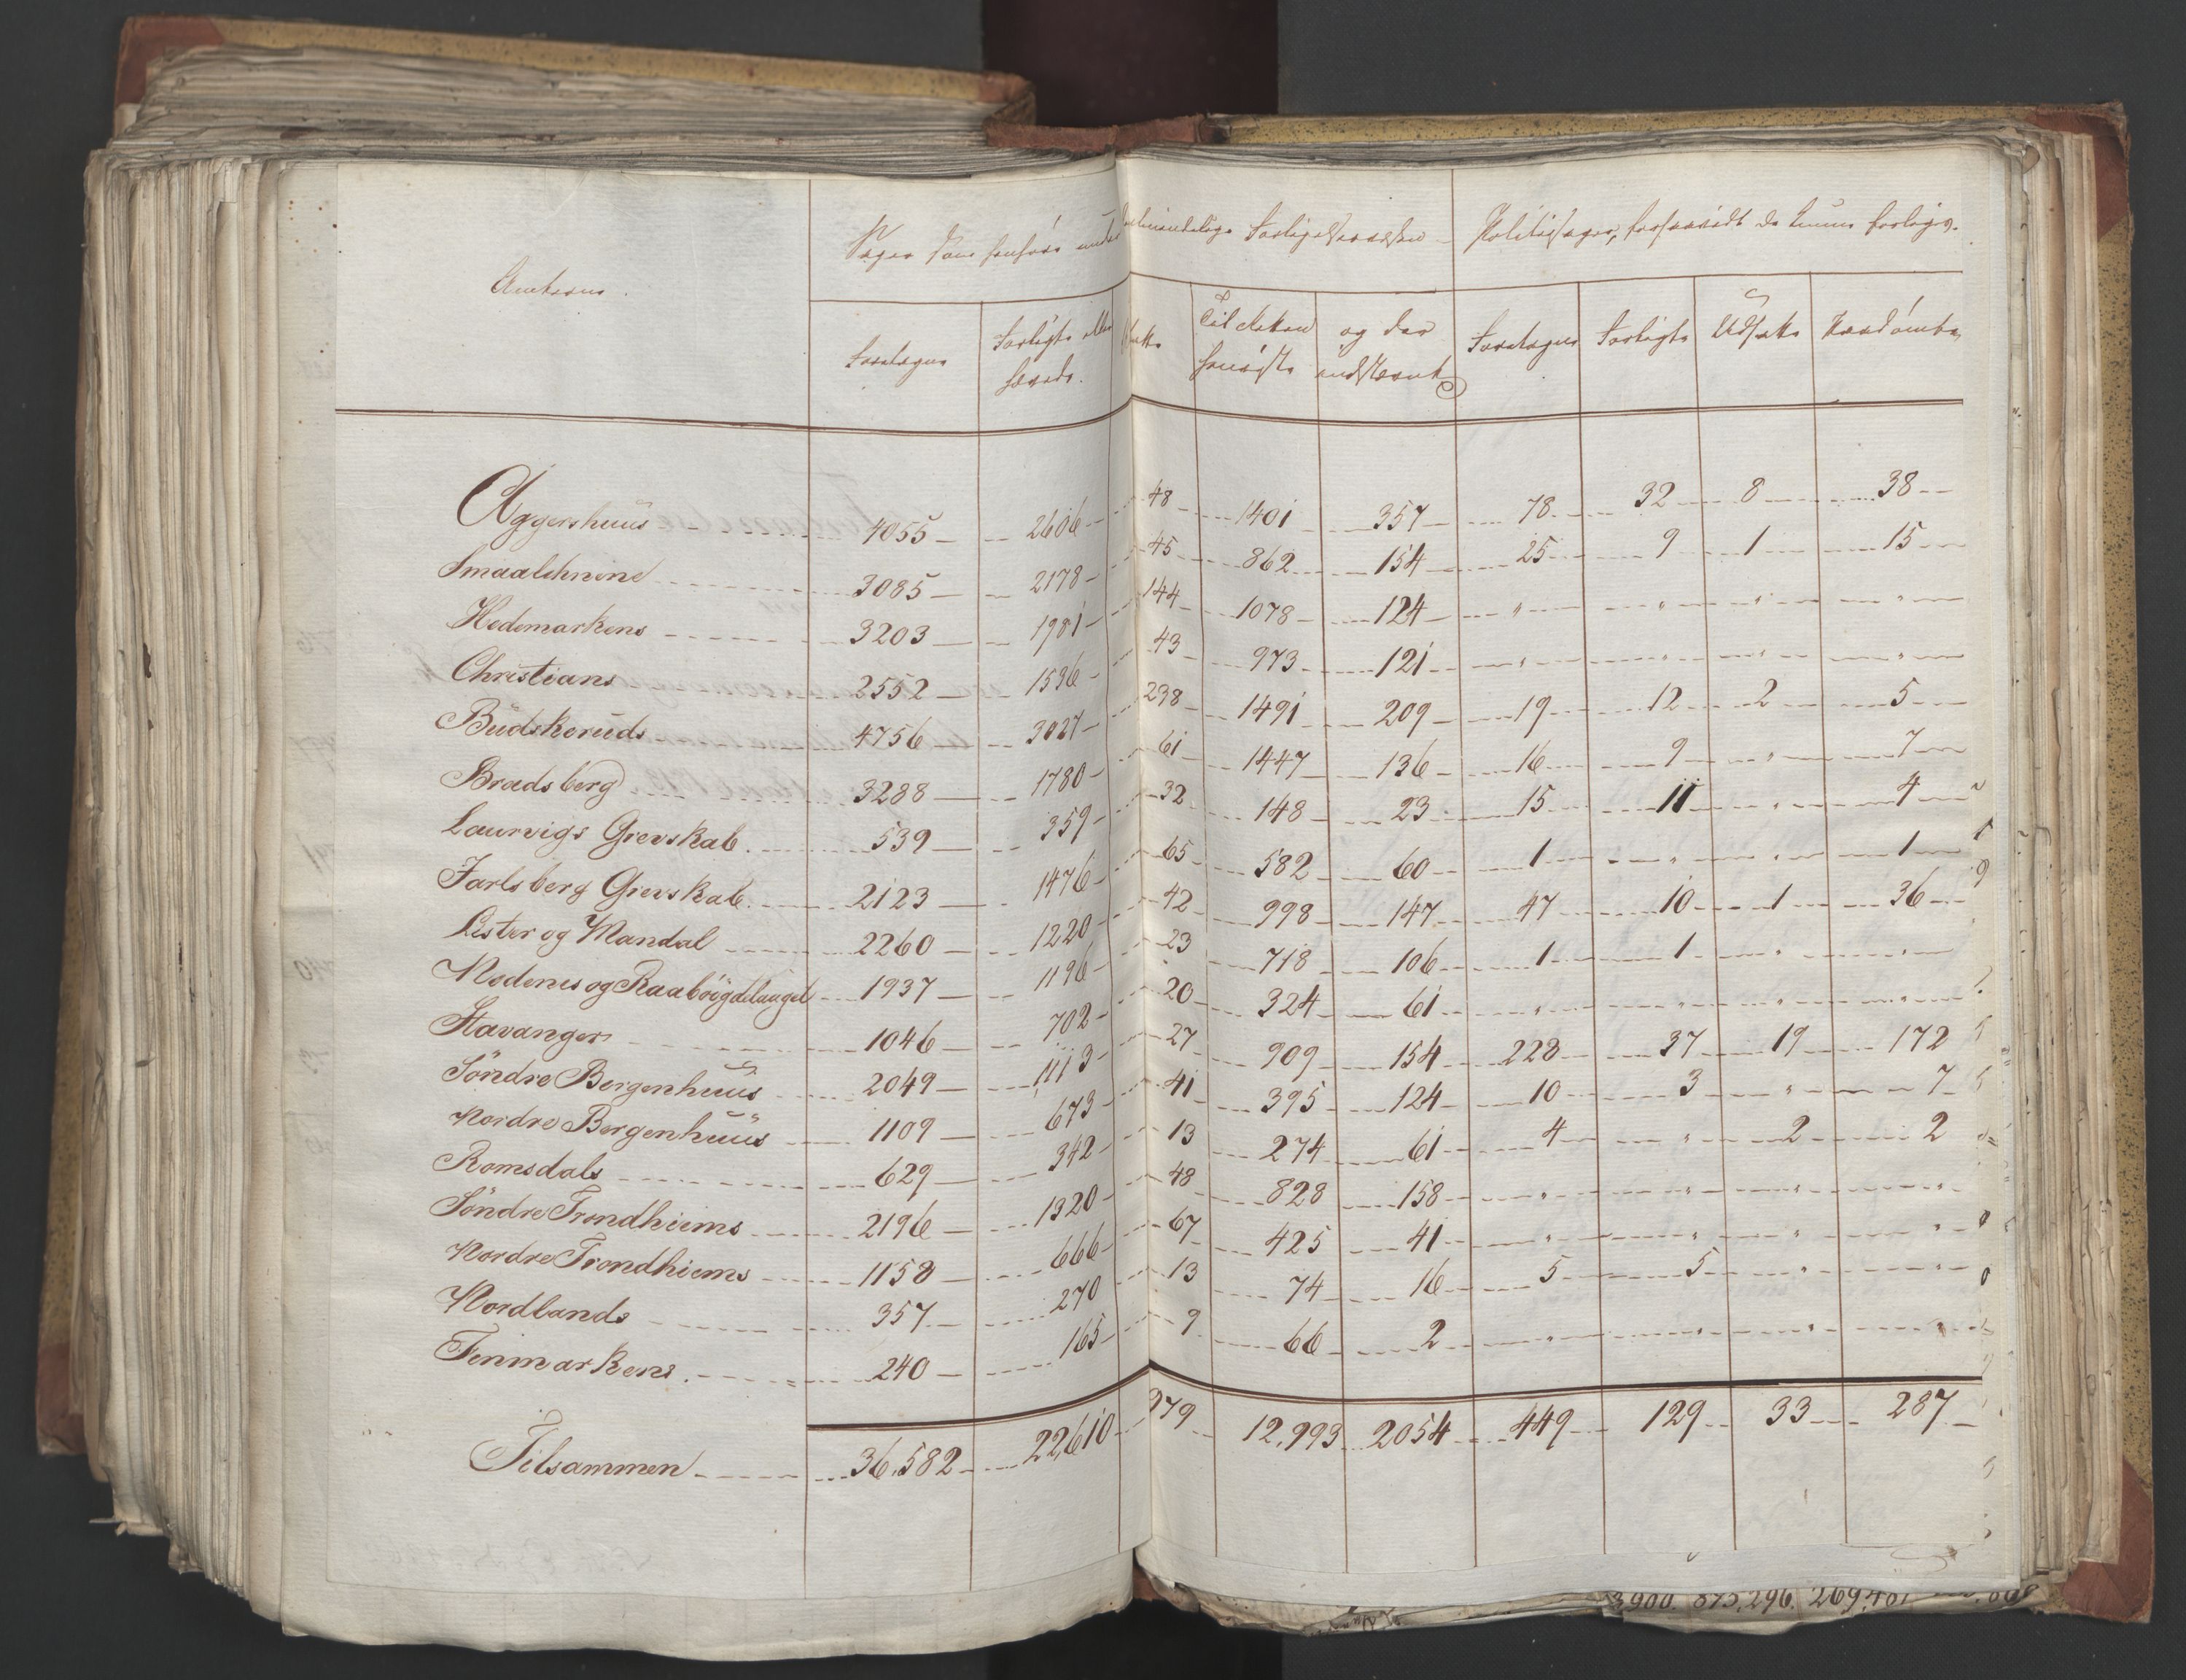 Amterne. Sager som henhøre under almindelige Forligelsesvæsen Politiesager, forsaavidt de kunne forliges.
Foretagne Forligte eller hævede. Udsatte Til Retten henviste og der indstævnte Foretagne Forligte Udsatte Paadömte
Aggershuus 4055 2606 48 1401 357 78 32 8 38
Smaalehnene 3085 2178 45 862 154 25 9 1 15
Hedemarkens 3203 1981 144 1078 124 " " " "
Christians 2552 1536 43 973 121 " " " "
Budskeruds 4756 3027 238 1491 209 19 12 2 5
Bradsberg 3288 1780 61 1447 136 16 9 " 7
Laurvigs Grevskab. 539 359 32 148 23 15 11 " 4
Jarlsberg Grevskab. 2123 1476 65 582 60 1 " " 1
Lister og Mandal 2260 1220 42 998 147 47 10 1 36
Nedenes og Raaböigdelauget 1937 1196 23 718 106 1 1 " "
Stavanger 1046 702 20 324 61 " " " "
Söndre Bergenhuus 2049 1113 27 909 154 228 37 19 172
Nordre Bergenhuus 1109 673 41 395 124 10 3 " 7
Romsdals 629 342 13 274 61 4 " 2 2
Söndre Trondhiems 2196 1320 48 828 158 " " " "
Nordre Trondhiems 1158 666 67 425 41 " " " "
Nordlands 357 270 13 74 16 5 5 " "
Finmarkens. 240 165 9 66 2 " " " "
Tilsammen 36,582 22,610 979 12,993 2054 449 129 33 287